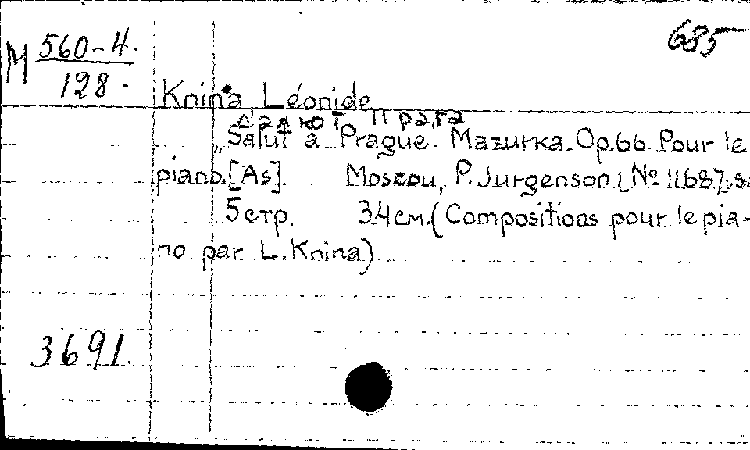 685
М 560-4.
128.
Knina, Léonide
"Salut à Prague. Mazurka. Op.66. Pour le
piano. [As]. Moscou, P. Jurgenson, [№ 11687,
5 стр. 34 см. (Compositions pour le pia-
no par L. Knina)
3691